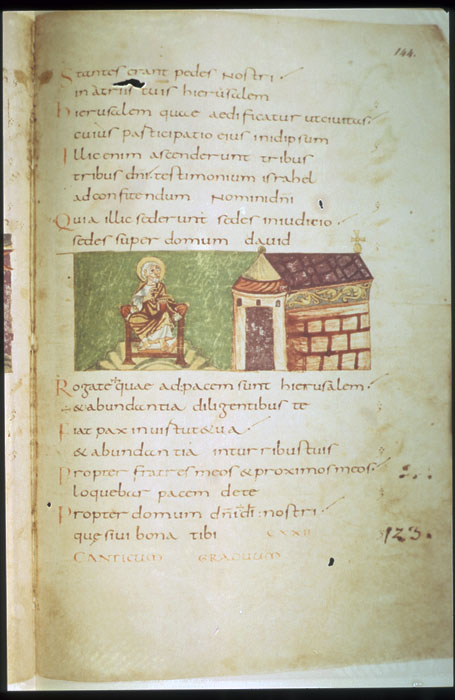 144.
Stantes erant pedes nostri
in atriis tuis hierusalem
hierusalem quae aedificatur ut civitas
cuius participatio eius in idipsum
Illic enim ascenderunt tribus
tribus dni testimonium israhel
ad confitendum nomini dni
Quia illic sederunt sedes in iudicio
sedes super domum david
Rogate quae ad pacem sunt hierusalem
& abundantia diligentibus te
Fiat pax in virtute tua
& abundantia in turribus tuis
Propter fratres meos & proximos meos
loquebar pacem de te
Propter domum dni di nostri
quesivi bona tibi CXXII
123.
CANTICUM GRADUUM